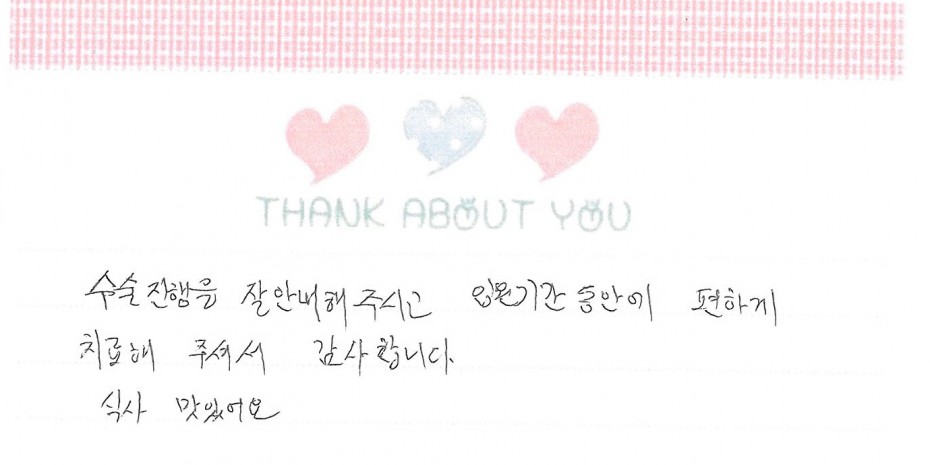 THANK ABOUT YOU
수술진행을 잘안내해주시고 입원기간동안에 편하게
치료해 주셔서 감사합니다.
식사 맛있어요